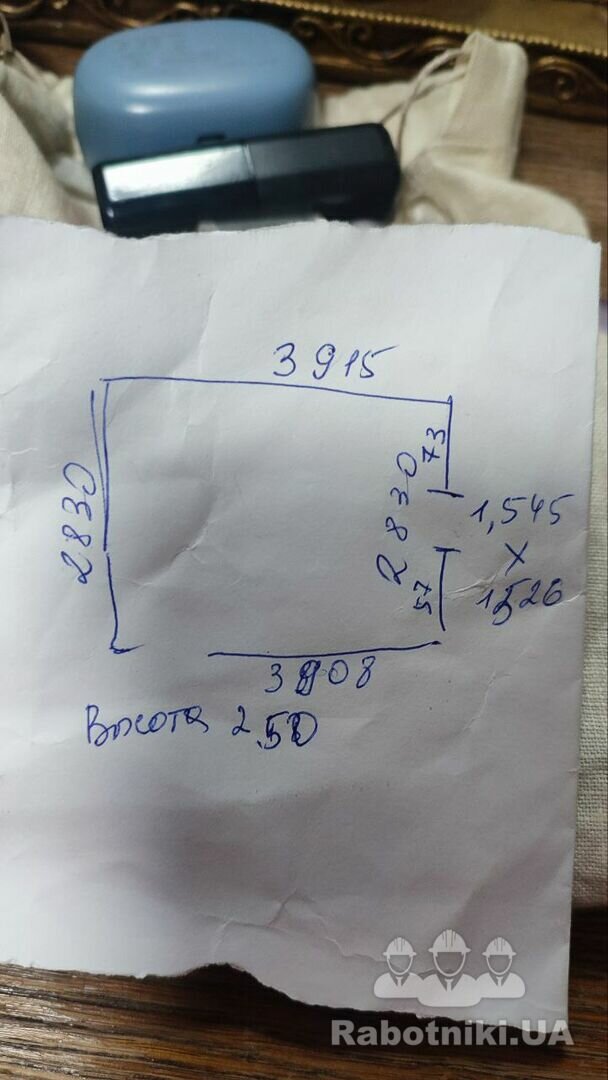 3915
2830
2830
73
1,545
х
1526
57
3908
Высота 2.50
Rabotniki.UA